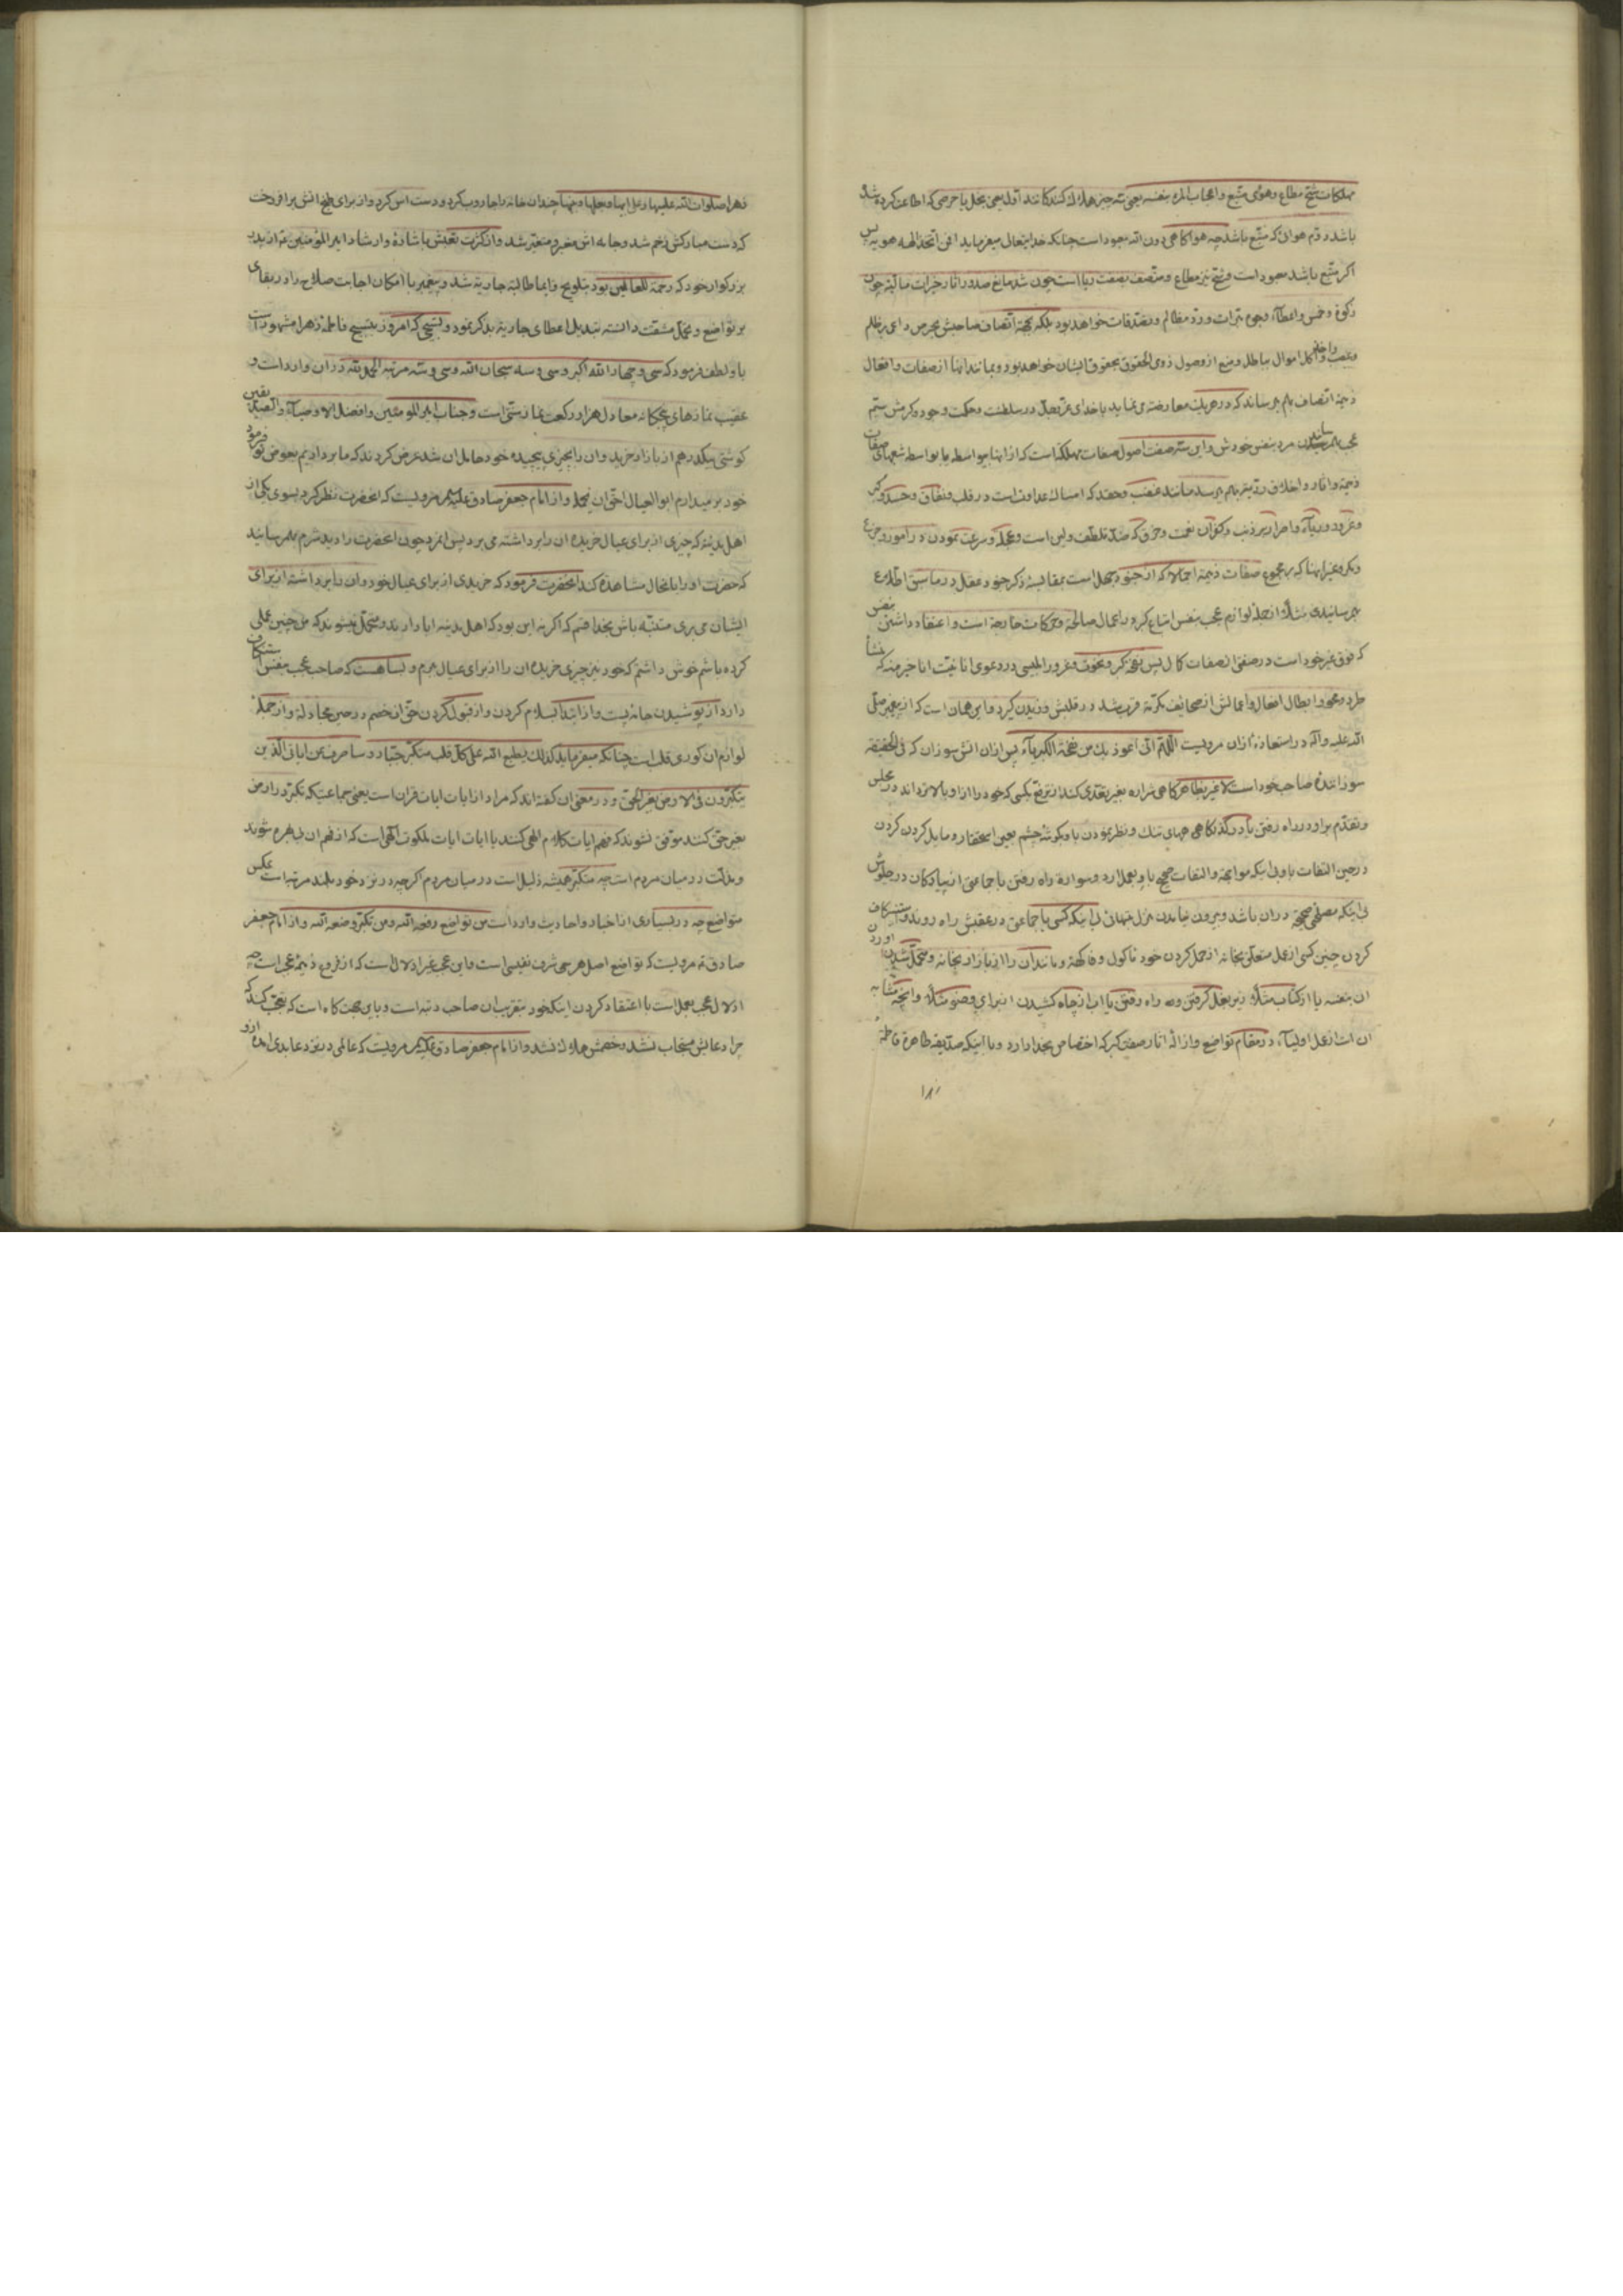 مهلکات شحّ مطاع و هوی متّبع و اعجاب المرء بنفسه یعنی سه چیز هلاک کننده‌کانند اوّل یعنی بخل یا حرصی که اطاعت کرده شد
باشد دوّم هوائی که متّبع باشد چه هوا کاهی دون الله معبود است چنانکه خدایتعال میفرماید افمن اتّخذ الهه هویه پس
اکر متّبع باشد معبود است و شحّ نیز مطاع و متّصف بصفت ریا است چون شد مانع صدور اثار خیرات مالیّه چون
زکوة و خمس و اعطاء وجوه مبرّات و ردّ مظالم و تصدّقات خواهد بود بلکه بجهة اتّصاف صاحبش بحرص داعی بر ظلم
و غصب و اخذ و اکل اموال بباطل و منع از وصول ذوی الحقوق بحقوق ایشان خواهد بود و بمانند اینها از صفات و افعال
ذمیمه اتّصاف بهم میرساند که در هریک معارضه می نماید با خدای عزّ و جلّ در سلطنت و حکمت وجود و کرمش سیّم
عجب بهمرسانیدن مرد بنفس خودش و این سه صفت اصول صفات مهلکه است که از اینها بواسطه یا بواسطه شعبهای صفات
ذمیمه و اثار و اخلاق ردیّه بهم میرسد مانند غضب و حقد که امساک عداوت است در قلب و نفاق و حسد و کبر
و غرور و ریاء و اصرار بر ذنب و کفران نعمت و خرق که ضدّ تلطّف ولین است و عجله و سرعت نمودن در امور و جزع
و مکر و غیر اینها که بر مجموع صفات ذمیمه اجمالا که از جنود جهل است بمقابلهٔ ذکر جنود عقل در ما سبق اطّلاع
بهرسانیدی مثلا از جمله لوازم عجب بنفس امتناع کردن از اعمال صالحه و حرکات خارجه است و اعتقاد داشتن نفس
که فوق غیر خود است در صفتی از صفات کمال پس نفخ کبر و نخوت و غرور ابلیسی در دعوی انانیّت انا خیر منه که منشأ
طرد و محو و ابطال افعال و اعمالش از صحایف مکرّمه قرب شد در قلبش وزیدن کیرد و این همان است که از پیغمبر صلّی
الله علیه و آله در استعاذهٔ ازان مرویست اللّهمّ انّی اعوذ بک من نفخة الکبریاء پس ازان اتش سوزان که فی الحقیقة
سوزانندهٔ صاحب خود است لا غیر بظاهر کاهی شراره بغیر تعدّی کند از ترفّع بکسی که خود را از او بالاتر داند در مجلس
و تقدّم بر او در راه رفتن یا در کذرکاهی جهای تنک و نظر نمودن باو بکوشهٔ چشم بعین استحقار و مایل کردن کردن
در حین التفات باو بی اینکه مواجهه و التفات صحیح باو بعمل ارد و سواره راه رفتن با جماعتی از پیادکان در جلوش
بی اینکه مصلحتی صحیحه دران باشد و بیرون نیامدن از منزل بتنهائی بی اینکه کسی یا جماعتی در عقبش راه روند و استنکاف
کردن چنین کسی از عمل متعلّق بخانه از حمل کردن خود ماکول و فاکهة و مانند ان را از بازار بخانه و متحمّل شدن اوردن
ان بنفسه یا از کتاب مثلا در زیر بغل کرفتن و به راه رفتن یا اب از چاه کشیدن از برای وضو مثلا و انچه مشابه
ان است از عمل اولیاء در مقام تواضع و ازالهٔ اثار صفت کبر که اختصاص بخدا دارد و با اینکه صدّیقه طاهره فاطمهٔ
۱۸۰
زهرا صلوات الله علیها و علی ابیها و بعلها و بنیها چندان خانه را جاروب کرد و دست اس کرد و از برای طبخ اتش بر افروخت
که دست مبارکش زخم شد و جامه اش مغبر و متغیّر شد و از کثرت تعبش باشاره و ارشاد امیر المؤمنین ع از پدر
بزرکوار خود که رحمة للعالمین بود بتلویح و ایما طالبه جاریه شد و پیغمبر با امکان اجابت صلاح را در بقای
بر تواضع و تحمّل مشقّت دانسته تبدیل اعطای جاریه بذکر نمود و تسبیحی که امروز بتسبیح فاطمهٔ زهرا مشهور است
باو لطف فرمود که سی و چهار الله اکبر و سی و سه سبحان الله و سی و سه مرتبه الحمد لله دران وارد است و
عقیب نمازهای پنجکانه معادل هزار رکعت نماز سنّتی است و جناب امیر المومنین و افضل الاوصیاء و الصدّیقین
کوشتی بیکدرهم از بازار خرید و ان را بچیزی پیچیده خود حامل ان شد عرض کردند که ما برداریم بعوض تو فرمود
خود بر میدارم ابو العیال احقّ ان یحمله و از امام جعفر صادق علیه السلام مرویست که انحضرت نظر کرد بسوی یکی از
اهل مدینه که چیزی از برای عیال خریده ان را برداشته می برد پس انمرد چون انحضرت را دید شرم بهمرسانید
که حضرت او را بانحال مشاهده کند انحضرت فرمود که خریدی از برای عیال خود و ان را برداشته از برای
ایشان می بری متنبّه باش بخدا قسم که اکر نه این بود که اهل مدینه ابا دارند و متحمّل نمیشوند که من چنین عملی
کرده باشم خوش داشتم که خود نیز چیزی خریده ان را از برای عیال برم و بسا هست که صاحب عجب بنفس استنکاف
دارد از پوشیدن جامهٔ پست و از ابتدا بسلام کردن و از قبول کردن حقّ از خصم در حین مجادله و از جملهٔ
لوازم ان کوری قلب است چنانکه میفرماید کذلک یطبع الله علی کلّ قلب متکبّر جبّار و ساصرف عن ایاتی الّذین
یتکبّرون فی الارض بغیر الحقّ و در معنی ان کفته اند که مراد از ایات ایات قران است یعنی جماعتیکه تکبّر در ارض
بغیر حقّ کنند موفّق نشوند که فهم ایات کلام الهی کنند یا ایات ایات ملکوت الهی است که از فهم ان بی بهره شوند
و مذلّت در میان مردم است چه متکبّر همیشه ذلیل است در میان مردم اکرچه در نزد خود بلند مرتبه است بعکس
متواضع چه در بسیاری از اخبار و احادیث وارد است من تواضع رفعه الله و من تکبّر وضعه الله و از امام جعفر
صادق ع مرویست که تواضع اصل هر شرف نفیسی است و این عجب غیر ادلال است که از فروع ذمیمهٔ عجب است چه
ادلال عجب بعمل است با اعتقاد کردن اینکه خود بتقرّبان صاحب رتبه است و باین جهت کاه است که تعجّب کند که
چرا دعایش مستجاب نشد و خصمش هلاک نشد و از امام جعفر صادق علیه السلام مرویست که عالمی در نزد عابدی امد از او